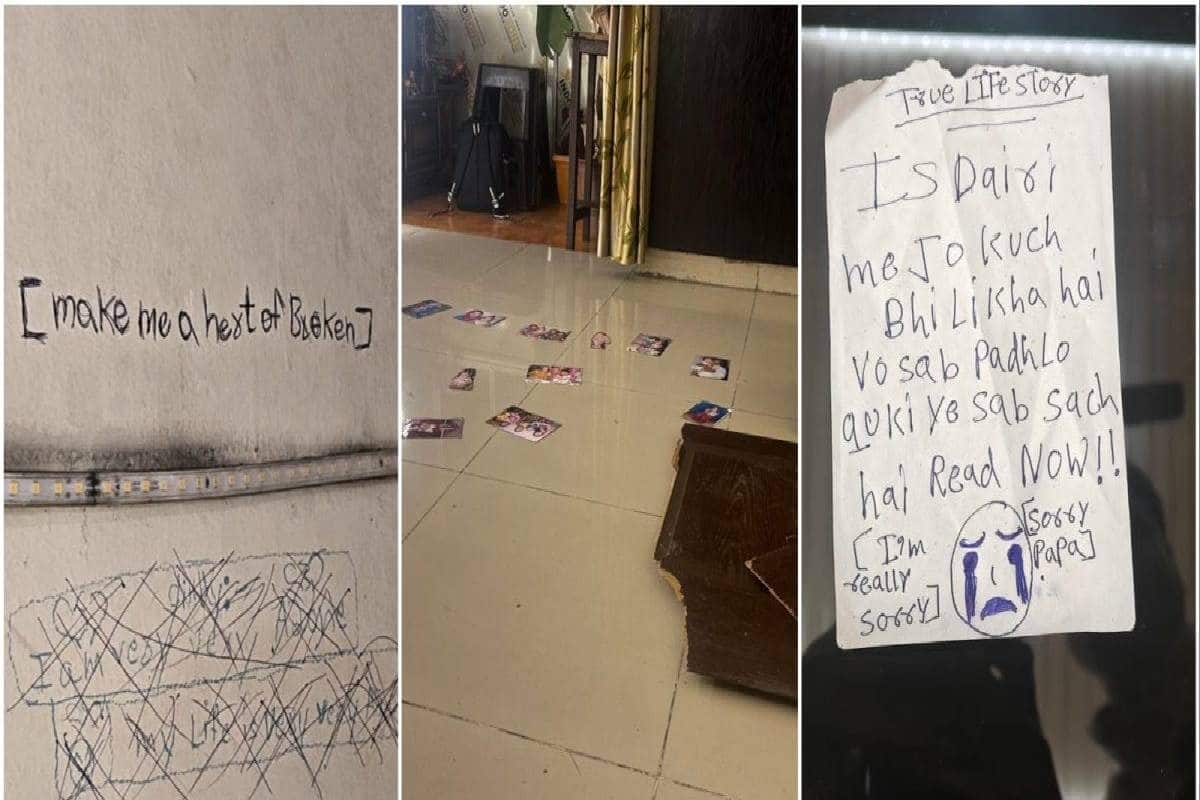 [make me a hert of Broken]
I am very very
my Life is very very
True LIFe story
Is Dairi
me Jo kuch
Bhi Likha hai
vo sab Padh Lo
quki ye sab sach
hai Read NOW!!
[I'm
really
sorry]
[sorry
PaPa]